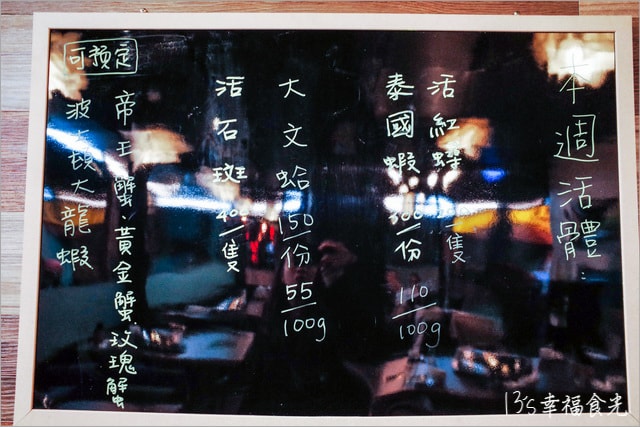 本週活體:
活紅蟳 /隻
泰國蝦 300/份 110/100g
大文蛤 150/份 55/100g
活石斑 400/隻
可預定
帝王蟹、黃金蟹 玫瑰蟹
波士頓大龍蝦
13's幸福食光